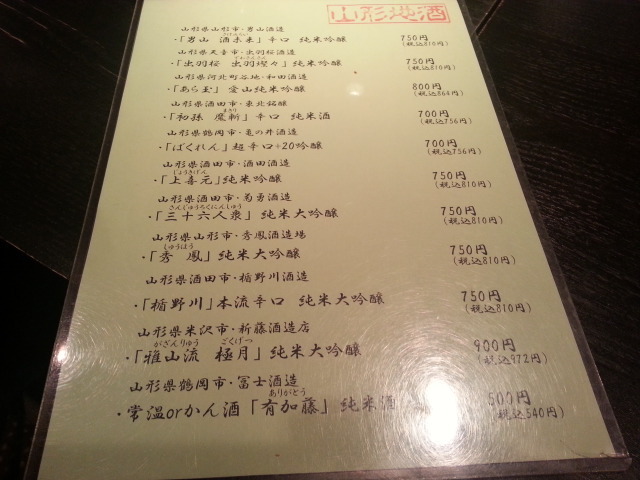 山形地酒
山形県山形市・男山酒造
・「男山 酒未来」辛口 純米吟醸 750円
(税込810円)
山形県天童市・出羽桜酒造
・「出羽桜 出羽燦々」純米吟醸 750円
(税込810円)
山形県河北町谷地・和田酒造
・「あら玉」愛山純米吟醸 800円
(税込864円)
山形県酒田市・東北銘醸
まきり
・「初孫 魔斬」辛口 純米酒 700円
(税込756円)
山形県鶴岡市・亀の井酒造
・「ばくれん」超辛口+20吟醸 700円
(税込756円)
山形県酒田市・酒田酒造
じょうきげん
・「上喜元」純米吟醸 750円
(税込810円)
山形県酒田市・菊勇酒造
さんじゅうろくにんしゅう
・「三十六人衆」純米大吟醸 750円
(税込810円)
山形県山形市・秀鳳酒造場
しゅうほう
・「秀鳳」純米大吟醸 750円
(税込810円)
山形県酒田市・楯野川酒造
・「楯野川」本流辛口 純米大吟醸 750円
(税込810円)
山形県米沢市・新藤酒造店
がざんりゅう ごくげつ
・「雅山流 極月」純米大吟醸 900円
(税込972円)
山形県鶴岡市・冨士酒造
ありがとう
・常温orかん酒「有加藤」純米酒 500円
(税込540円)